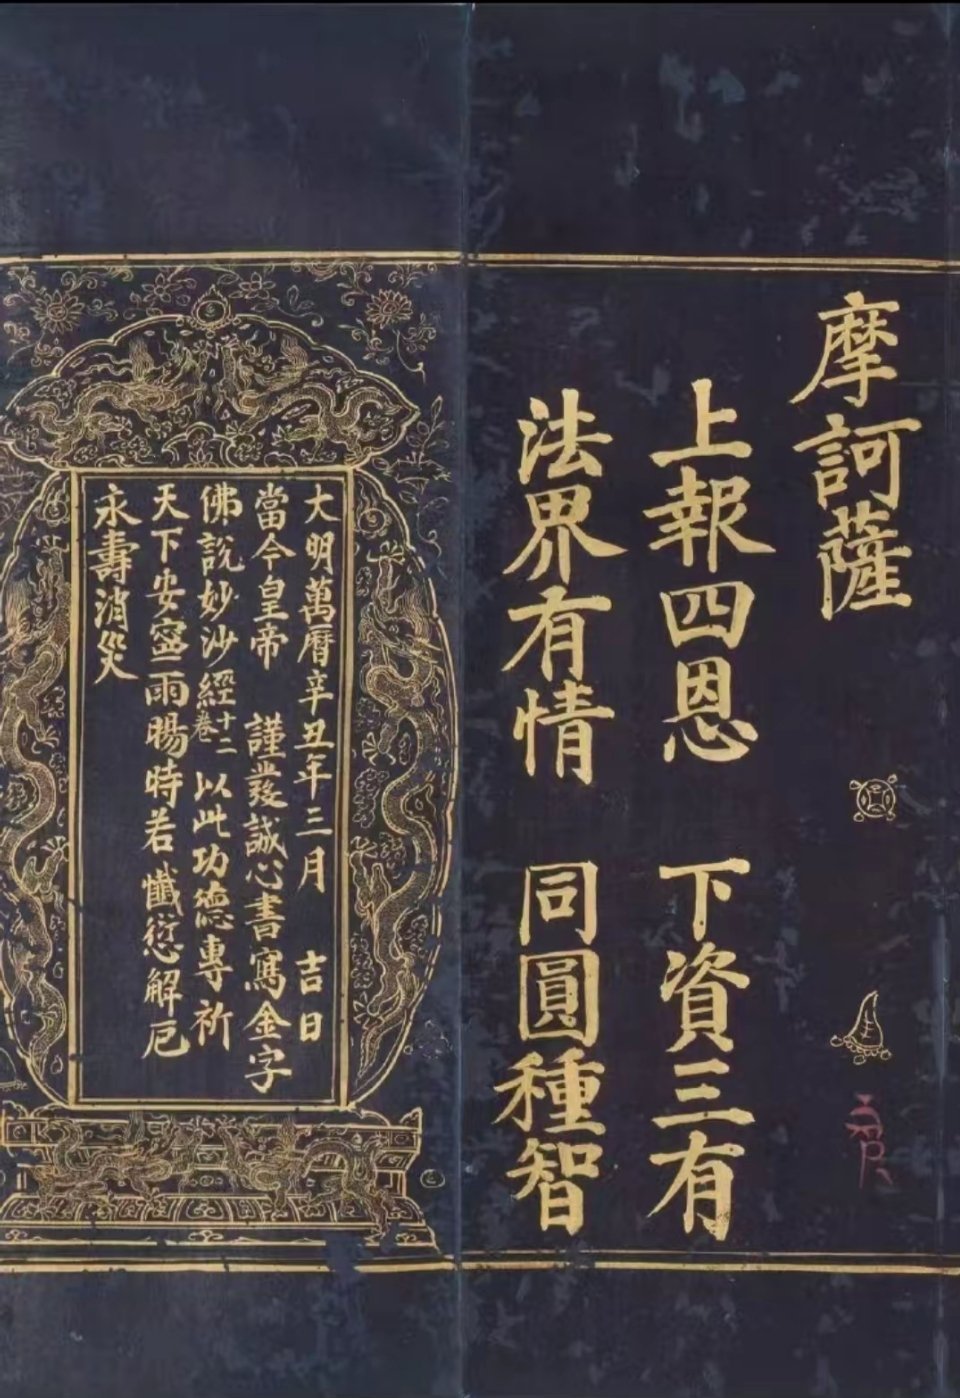 摩訶薩
上報四恩 下資三有
法界有情 同圓種智
大明萬曆辛丑年三月 吉日
當今皇帝 謹發誠心書寫金字
佛說妙沙經十二卷 以此功德專祈
天下安寍雨暘時若懺愆解厄
永壽消災